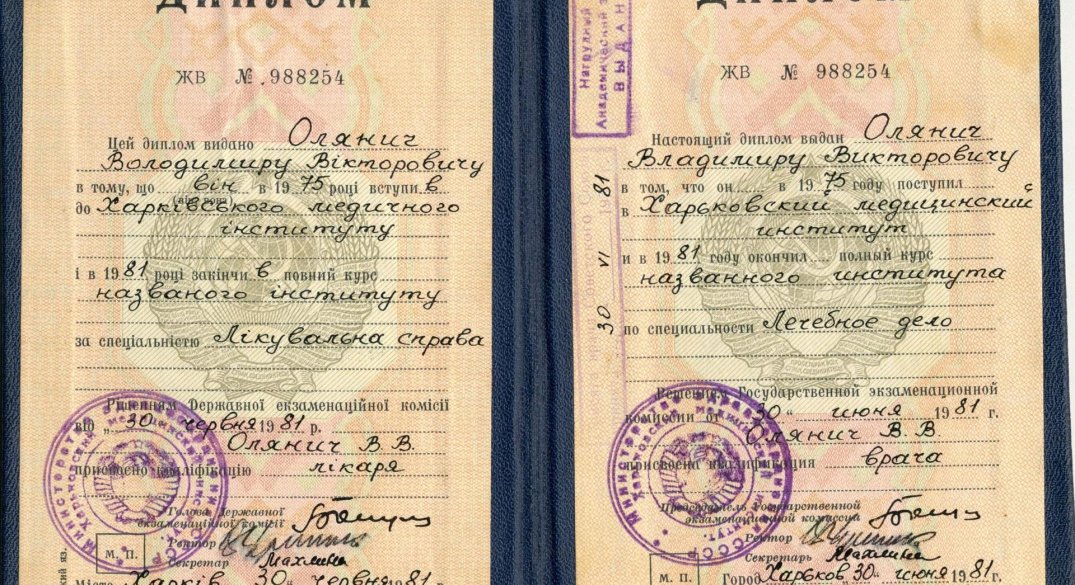 ДИПЛОМ
ЖВ № 988254
Цей диплом видано Олянич
Володимиру Вікторовичу
в тому, що він в 1975 році вступив
до Харківського медичного
інституту
і в 1981 році закінчив повний курс
названого інституту
за спеціальністю Лікувальна справа
Рішенням Державної екзаменаційної комісії
від „30" червня 1981 р.
Олянич В. В.
присвоєно кваліфікацію
лікаря
Голова Державної
екзаменаційної комісії
Ректор
Секретар Махлина
М. П.
Місто Харків 30" червня 1981 р.
ДИПЛОМ
ЖВ № 988254
Настоящий диплом выдан Олянич
Владимиру Викторовичу
в том, что он в 1975 году поступил
в Харьковский медицинский
институт
и в 1981 году окончил полный курс
названного института
по специальности Лечебное дело
Решением Государственной экзаменационной
комиссии от „30" июня 1981 г.
Олянич В. В.
присвоена квалификация врача
Председатель Государственной
экзаменационной комиссии
Ректор
Секретарь Махлина
М. П.
Город Харьков 30" июня 1981 г.
Нагрудный
Академический
ВЫДАН
30 VI 81